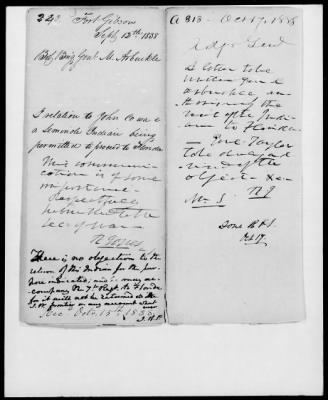 243. Fort Gibson
Sept. 12th 1838
Bvt. Brig. Genl. M. Arbuckle
In relation to John
a Seminole Indian being
permitted to proceed to Florida
This communi-
cation is of some
importance
Respectfully
submitted to the
Sec. of War
R. Jones
There is no objection to the
return of this Indian for the pur-
pose indicated, and he may ac-
company the 7th Regt. to Florida
for it will not be returned to the
frontier on any account
Rec. Oct. 15th 1838
J. R. P.
A 313 - Oct 17, 1838
Adjt. Genl
A letter to be
written Genl
Arbuckle, au-
thorising the
return of the Indi-
an to Florida
Genl. Taylor
to be advised
of the
object &c
R J
Done
Oct 17.